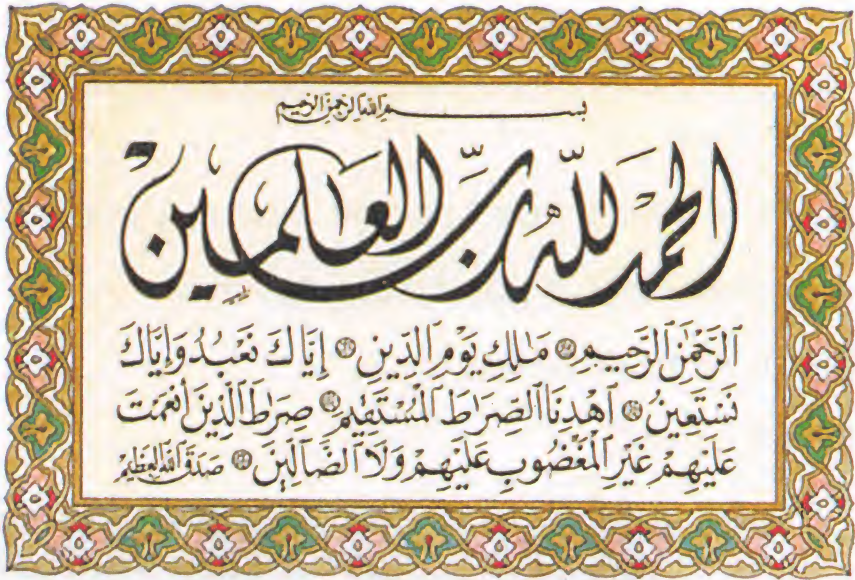 بسم الله الرحمن الرحيم
الحمد لله رب العالمين
ٱلرَّحْمَٰنِ ٱلرَّحِيمِ ۝ مَٰلِكِ يَوْمِ ٱلدِّينِ ۝ إِيَّاكَ نَعْبُدُ وَإِيَّاكَ
نَسْتَعِينُ ۝ ٱهْدِنَا ٱلصِّرَاطَ ٱلْمُسْتَقِيمَ ۝ صِرَاطَ ٱلَّذِينَ أَنْعَمْتَ
عَلَيْهِمْ غَيْرِ ٱلْمَغْضُوبِ عَلَيْهِمْ وَلَا ٱلضَّالِّينَ ۝ صدق الله العظيم